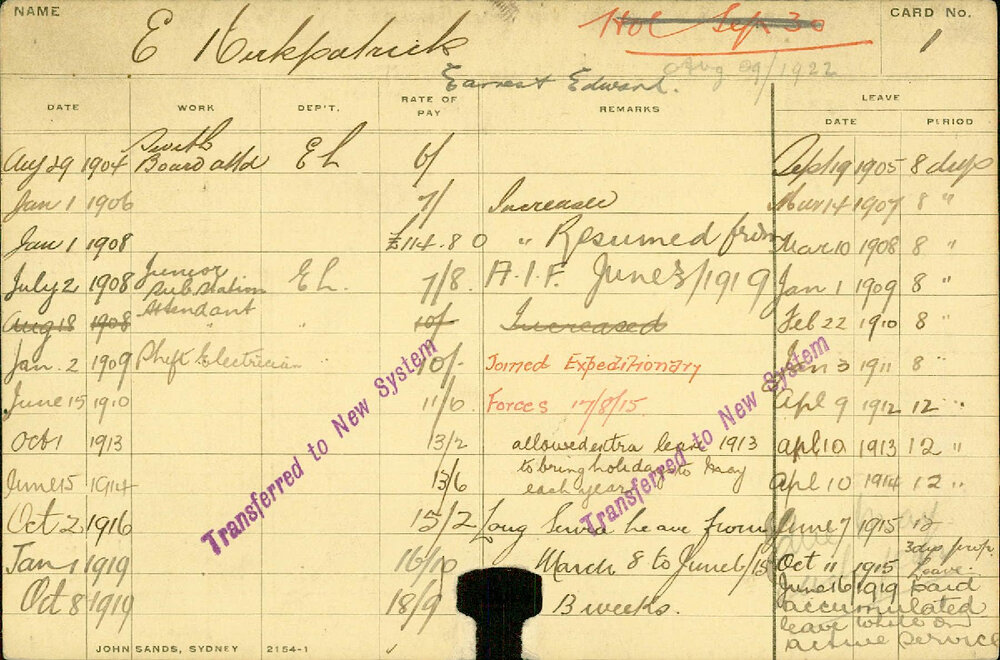 NAME
E Kirkpatrick
Hol Sep 30
CARD No.
1
Earnest Edward.
Aug 09/1922
DATE WORK DEP'T. RATE OF PAY REMARKS LEAVE
DATE PERIOD
Aug 29 1904 Switch Board attd E L 6/ Sept 19 1905 8 days
Jan 1 1906 7/ Increase Mar 14 1907 8 "
Jan 1 1908 £114.8.0 " Resumed from Mar 10 1908 8 "
July 2 1908 Junior Substation Attendant E L. 7/8 A.I.F. June 3/1919 Jan 1 1909 8 "
Aug 18 1908 " " 10/- Increased Feb 22 1910 8 "
Jan. 2 1909 Shift Electrician " 10/- Joined Expeditionary Jan 3 1911 8 "
June 15 1910 11/6 Forces 17/8/15. Apl 9 1912 12 "
Oct 1 1913 13/2 allowed extra leave 1913 apl 10 1913 12 "
to bring holidays to May
June 15 1914 13/6 each year Apl 10 1914 12 "
Oct 2 1916 15/2 Long Service Leave from June 7 1915 12
Jan 1 1919 16/10 March 8 to June 6/15 Oct 11 1915 3 days prop. Leave.
Oct 8 1919 18/9 13 weeks. June 16 1919 paid
accumulated
leave while on
active service
Transferred to New System
Transferred to New System
JOHN SANDS, SYDNEY 2154-1